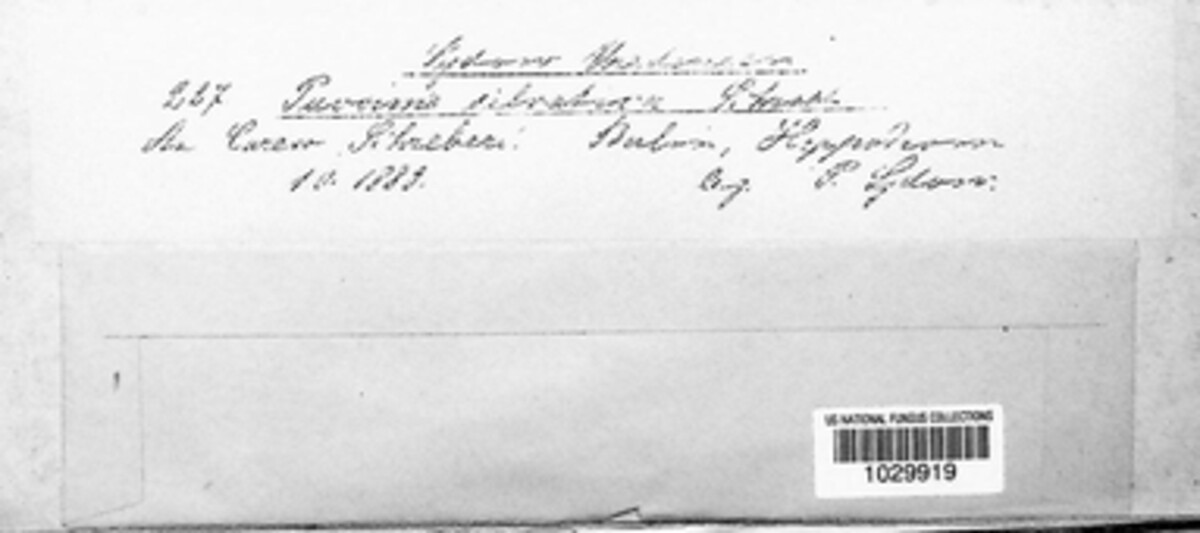 Sydow Uredineen
227 Puccinia silvatica Schroet.
An Carex Schreberi. Berlin, Hippodrom
10. 1883. leg. P. Sydow.
US NATIONAL FUNGUS COLLECTIONS
1029919